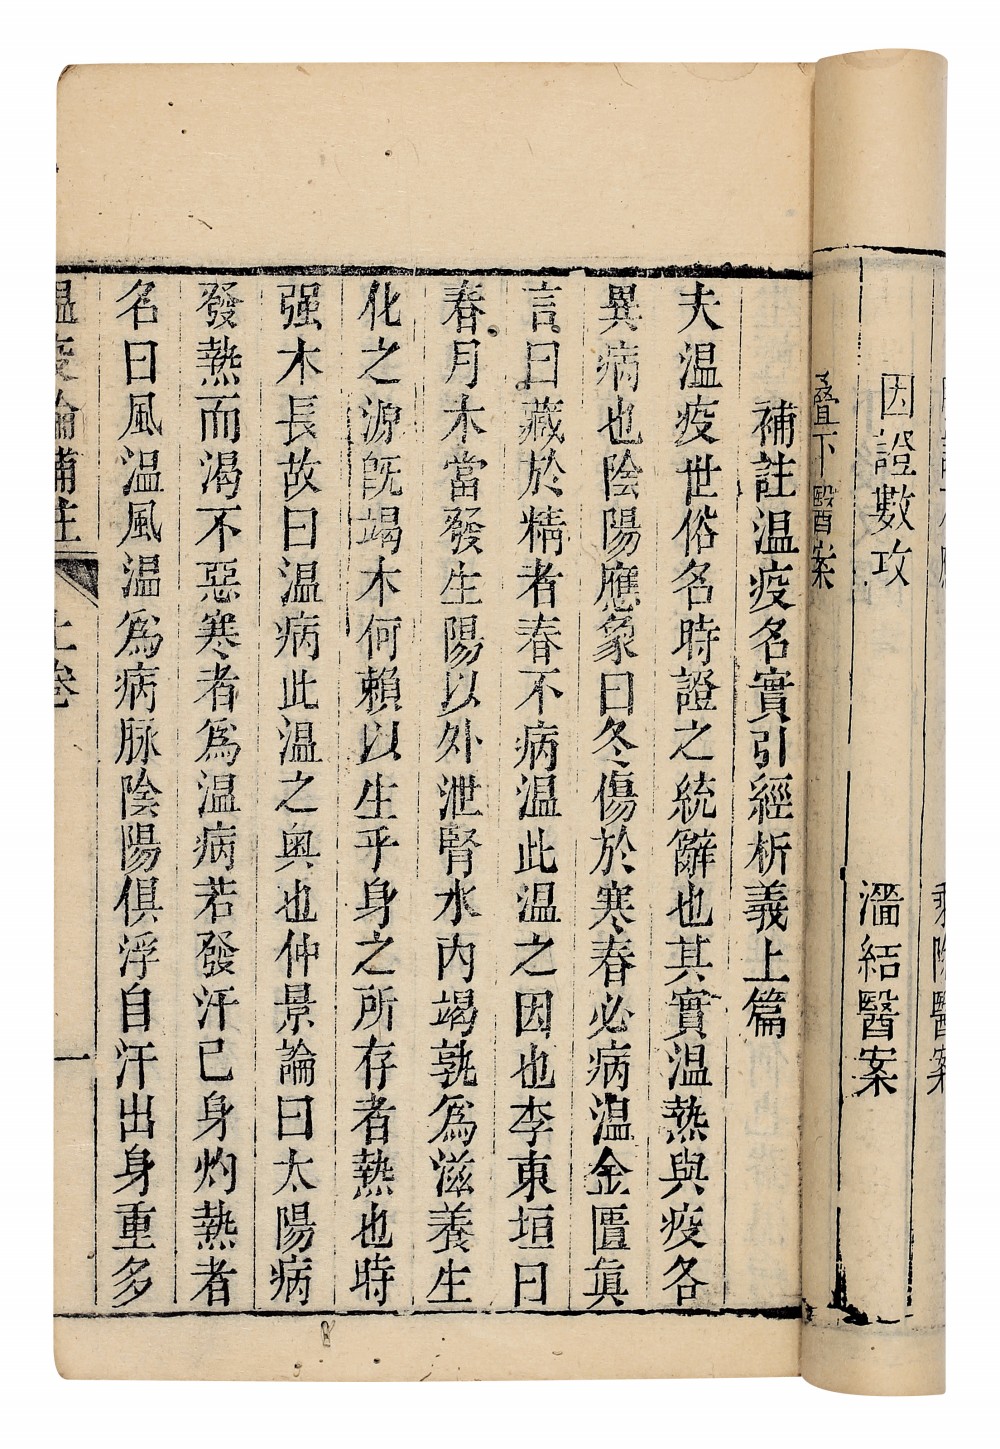 乘除醫案
因證數攻
溜結醫案
叠下醫案
補註温疫名實引經析義上篇
夫温疫世俗名時證之統辭也其實温熱與疫各
異病也陰陽應象曰冬傷於寒春必病温金匱眞
言曰藏於精者春不病温此温之因也李東垣曰
春月木當發生陽以外泄腎水内竭孰爲滋養生
化之源旣竭木何賴以生乎身之所存者熱也時
强木長故曰温病此温之奥也仲景論曰太陽病
發熱而渴不惡寒者爲温病若發汗已身灼熱者
名曰風温風温爲病脉陰陽俱浮自汗出身重多
温疫論補註
上卷
一